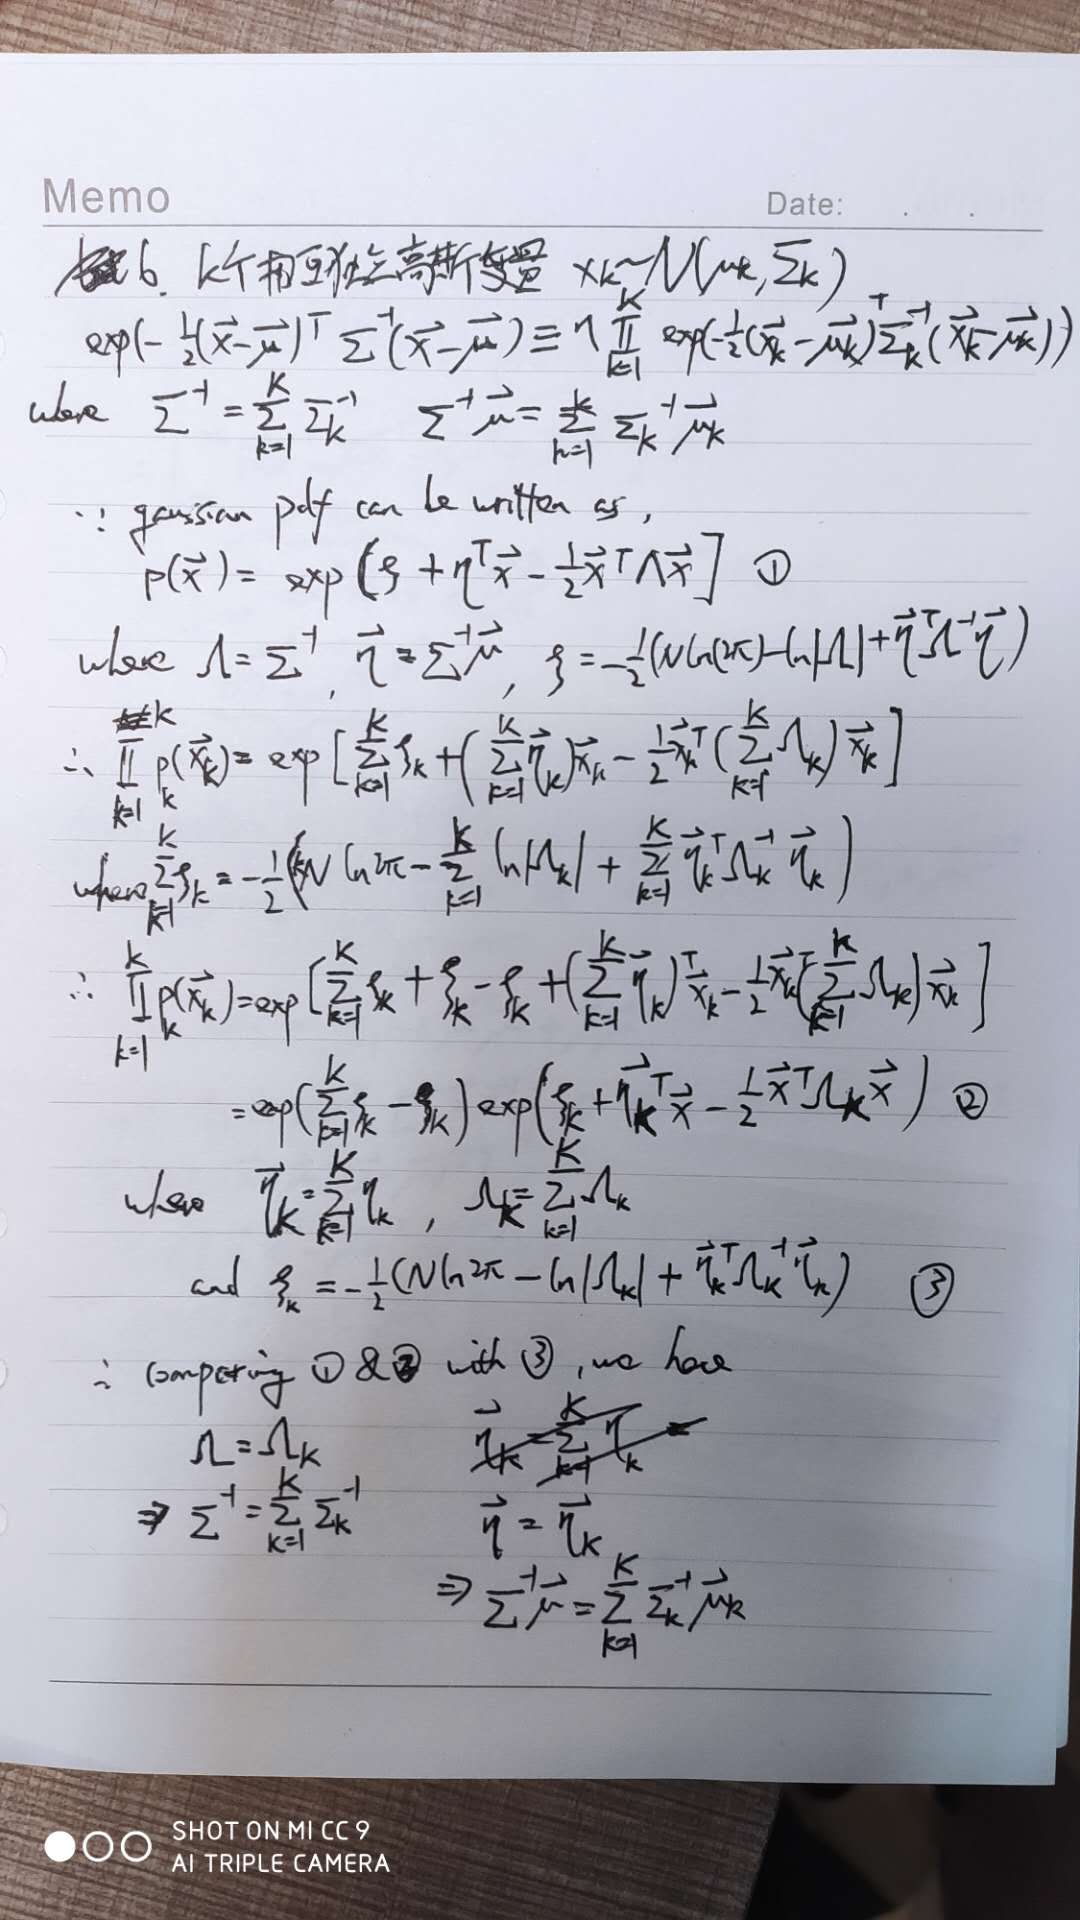 Memo
Date: . .
6. K个相互独立高斯变量 xk~N(μk, Σk)
exp(-½(x⃗-μ⃗)ᵀ Σ⁻¹(x⃗-μ⃗)) ≡ η ∏_{k=1}^{K} exp(-½(x⃗k-μ⃗k)ᵀΣk⁻¹(x⃗k-μ⃗k))
where Σ⁻¹ = Σ_{k=1}^{K} Σk⁻¹ Σ⁻¹μ⃗ = Σ_{k=1}^{K} Σk⁻¹μ⃗k
∵ gaussian pdf can be written as,
p(x⃗) = exp[ξ + ηᵀx⃗ - ½x⃗ᵀΛx⃗] ①
where Ω = Σ⁻¹, η⃗ = Σ⁻¹μ⃗, ξ = -½(N ln(2π) - ln|Ω| + η⃗ᵀΩ⁻¹η⃗)
∴ ∏_{k=1}^{K} pk(x⃗k) = exp[Σ_{k=1}^{K} ξk + (Σ_{k=1}^{K} η⃗k)x⃗k - ½x⃗kᵀ(Σ_{k=1}^{K} Ωk)x⃗k]
where Σ_{k=1}^{K} ξk = -½(KN ln2π - Σ_{k=1}^{K} ln|Ωk| + Σ_{k=1}^{K} η⃗kᵀΩk⁻¹η⃗k)
∴ ∏_{k=1}^{K} pk(x⃗k) = exp[Σ_{k=1}^{K} ξk + ξk - ξk + (Σ_{k=1}^{K} η⃗k)ᵀx⃗k - ½x⃗kᵀ(Σ_{k=1}^{K} Ωk)x⃗k]
= exp(Σ_{k=1}^{K} ξk - ξk) exp(ξk + η⃗Kᵀx⃗ - ½x⃗ᵀΩKx⃗) ②
where η⃗K = Σ_{k=1}^{K} ηk, ΩK = Σ_{k=1}^{K} Ωk
and ξk = -½(N ln2π - ln|Ωk| + η⃗kᵀΩk⁻¹η⃗k) ③
∴ comparing ① & ② with ③, we have
Ω = ΩK
⇒ Σ⁻¹ = Σ_{k=1}^{K} Σk⁻¹ η⃗ = η⃗K
⇒ Σ⁻¹μ⃗ = Σ_{k=1}^{K} Σk⁻¹μ⃗k
SHOT ON MI CC 9
AI TRIPLE CAMERA